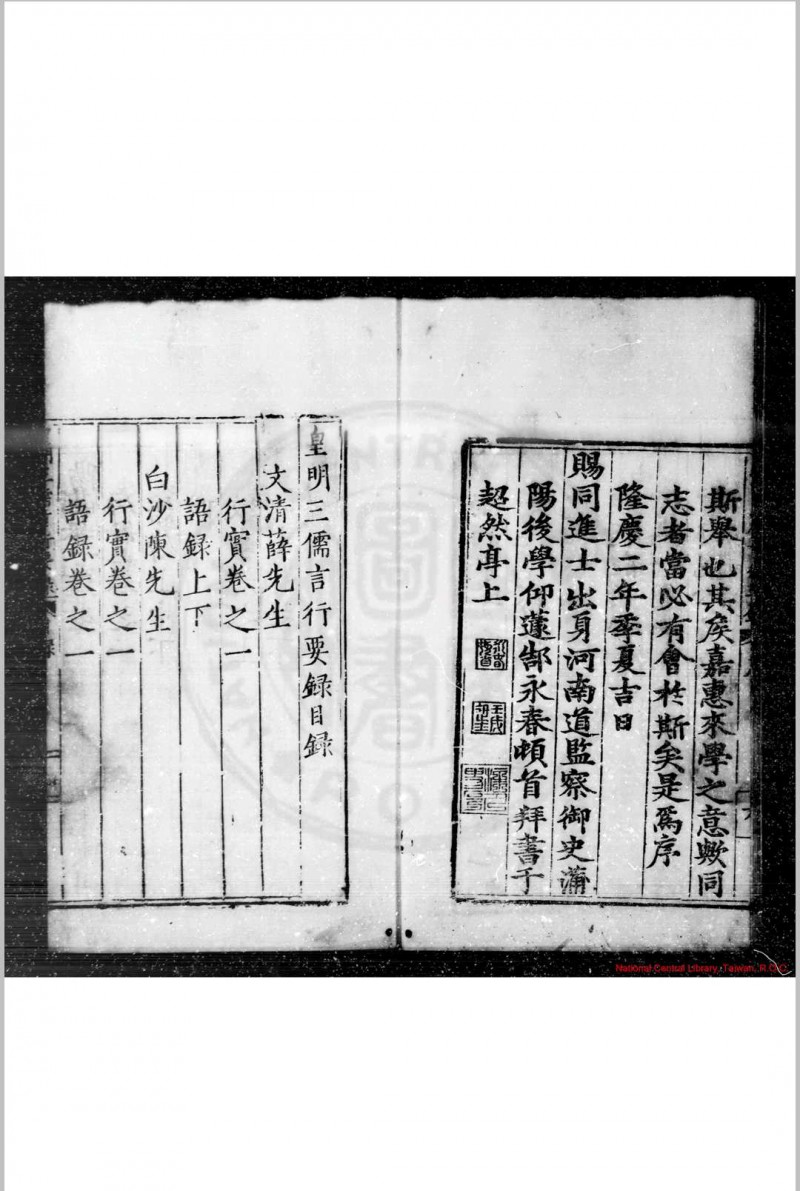 斯舉也其矦嘉惠來學之意歟同
志者當必有會於斯矣是爲序
隆慶二年季夏吉日
賜同進士出身河南道監察御史蒲
陽後學仰蘧郜永春頓首拜書于
超然亭上
皇明三儒言行要録目録
文清薛先生
行實卷之一
語録上下
白沙陳先生
行實卷之一
語録卷之一
National Central Library, Taiwan, R.O.C